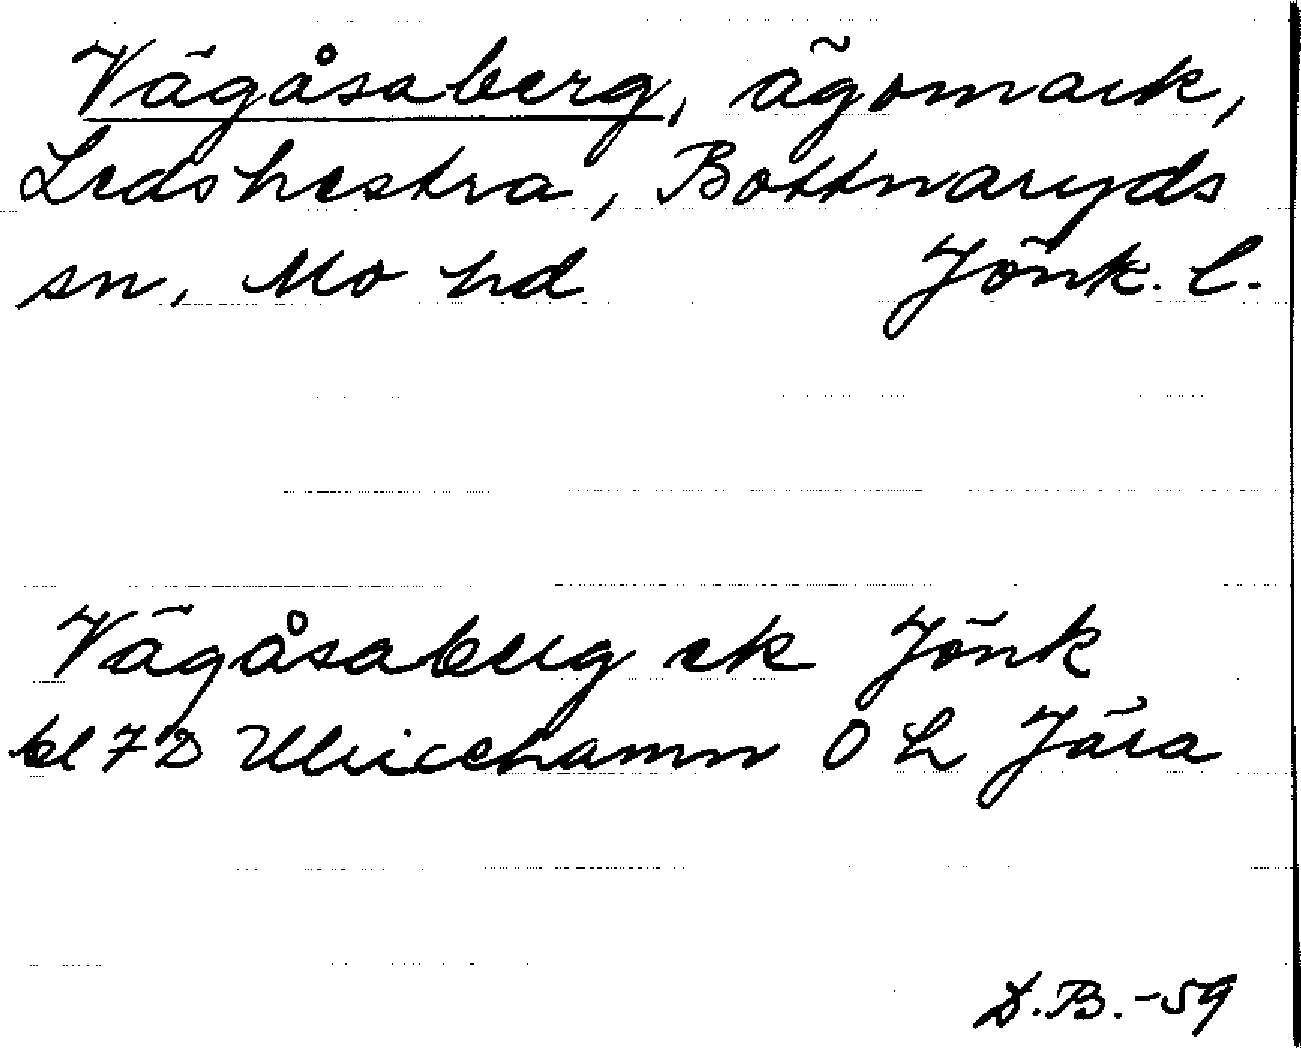 Vägåsaberg, ägomark,
Ledshestra, Bottnaryds
sn, Mo hd Jönk. l.
Vägåsaberg ek Jönk
bl 7 D Ulricehamn O L Jära
D.B. -59